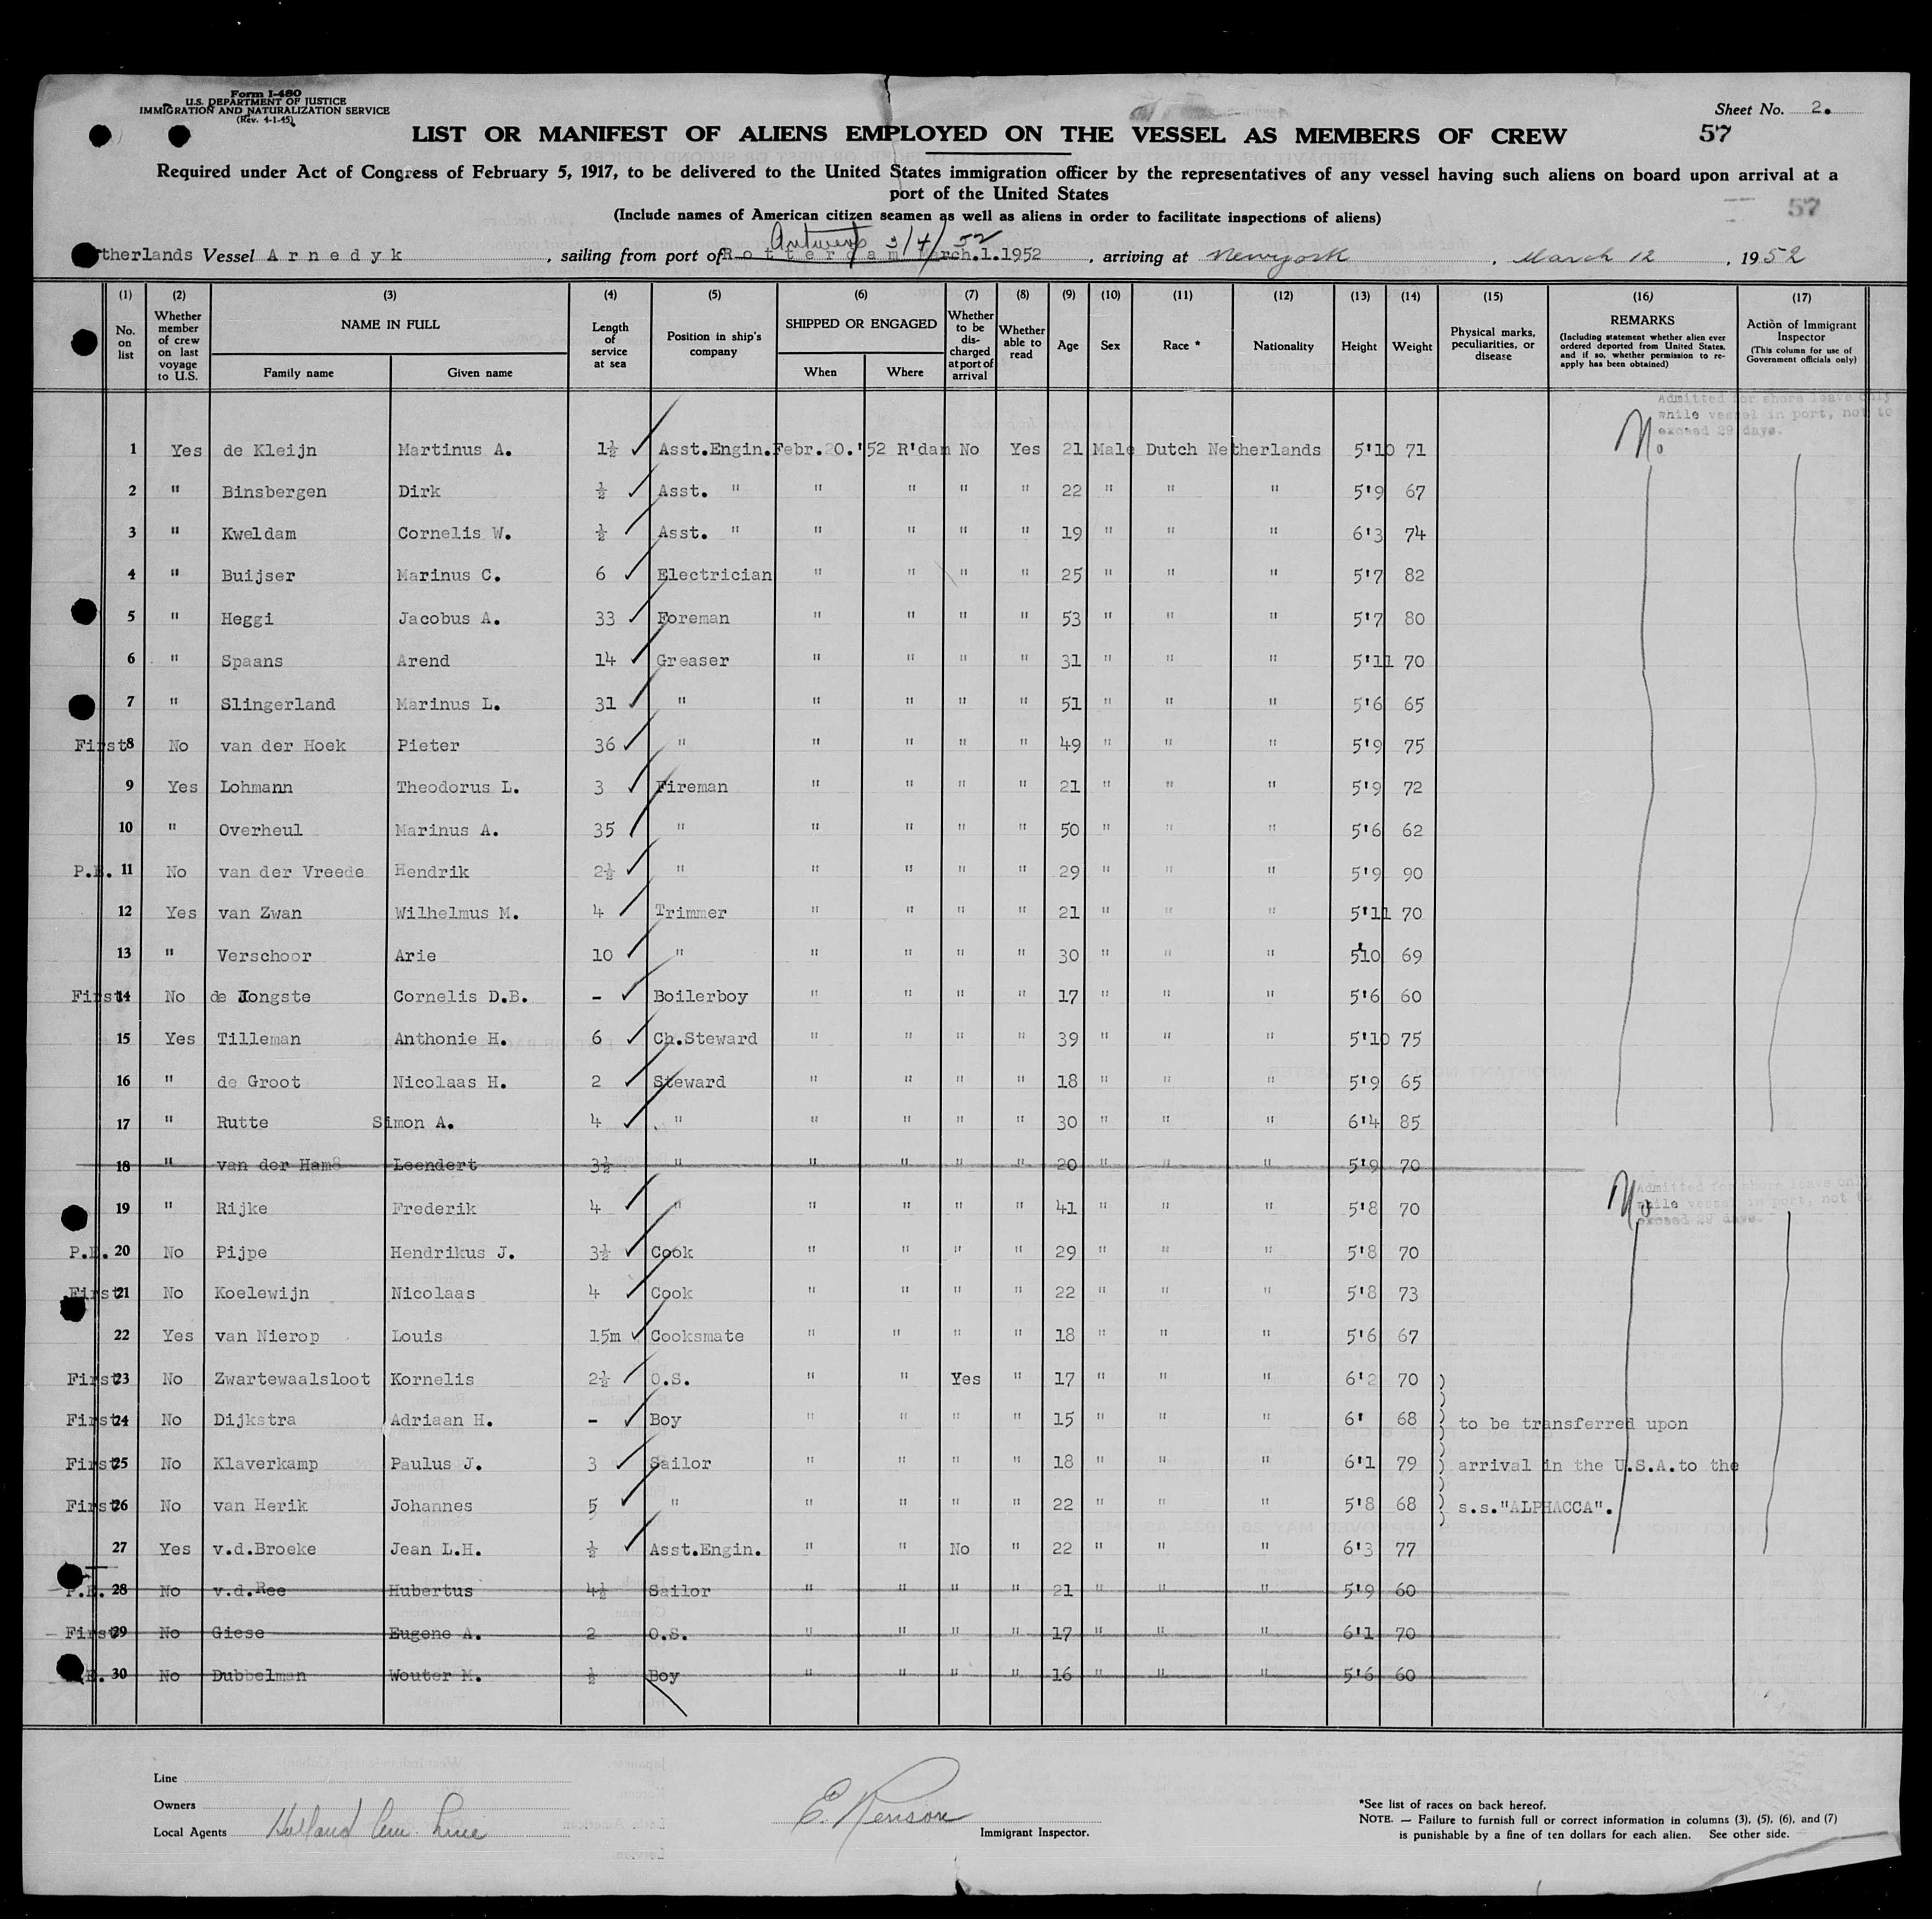 Form I-480
U.S. DEPARTMENT OF JUSTICE
IMMIGRATION AND NATURALIZATION SERVICE
(Rev. 4-1-45)
Sheet No. 2.
LIST OR MANIFEST OF ALIENS EMPLOYED ON THE VESSEL AS MEMBERS OF CREW
57
Required under Act of Congress of February 5, 1917, to be delivered to the United States immigration officer by the representatives of any vessel having such aliens on board upon arrival at a
port of the United States
(Include names of American citizen seamen as well as aliens in order to facilitate inspections of aliens)
57
Antwerp 3/4/52
therlands Vessel Arnedyk, sailing from port of Rotterdam March.1.1952, arriving at Newyork, March 12, 1952
(1) (2) (3) (4) (5) (6) (7) (8) (9) (10) (11) (12) (13) (14) (15) (16) (17)
No. on list
Whether member of crew on last voyage to U.S.
NAME IN FULL
Family name
Given name
Length of service at sea
Position in ship's company
SHIPPED OR ENGAGED
When
Where
Whether to be discharged at port of arrival
Whether able to read
Age
Sex
Race *
Nationality
Height
Weight
Physical marks, peculiarities, or disease
REMARKS
(Including statement whether alien ever ordered deported from United States, and if so, whether permission to re-apply has been obtained)
Action of Immigrant Inspector
(This column for use of Government officials only)
Admitted for shore leave only
while vessel in port, not to
exceed 29 days.
No
1 Yes de Kleijn Martinus A. 1½ Asst.Engin. Febr.20.'52 R'dam No Yes 21 Male Dutch Netherlands 5'10 71
2 " Binsbergen Dirk ½ Asst. " " " " " 22 " " " 5'9 67
3 " Kweldam Cornelis W. ½ Asst. " " " " " 19 " " " 6'3 74
4 " Buijser Marinus C. 6 Electrician " " " " 25 " " " 5'7 82
5 " Heggi Jacobus A. 33 Foreman " " " " 53 " " " 5'7 80
6 " Spaans Arend 14 Greaser " " " " 31 " " " 5'11 70
7 " Slingerland Marinus L. 31 " " " " " 51 " " " 5'6 65
First 8 No van der Hoek Pieter 36 " " " " " 49 " " " 5'9 75
9 Yes Lohmann Theodorus L. 3 Fireman " " " " 21 " " " 5'9 72
10 " Overheul Marinus A. 35 " " " " " 50 " " " 5'6 62
P.E. 11 No van der Vreede Hendrik 2½ " " " " " 29 " " " 5'9 90
12 Yes van Zwan Wilhelmus M. 4 Trimmer " " " " 21 " " " 5'11 70
13 " Verschoor Arie 10 " " " " " 30 " " " 5'10 69
First 14 No de Jongste Cornelis D.B. - Boilerboy " " " " 17 " " " 5'6 60
15 Yes Tilleman Anthonie H. 6 Ch.Steward " " " " 39 " " " 5'10 75
16 " de Groot Nicolaas H. 2 Steward " " " " 18 " " " 5'9 65
17 " Rutte Simon A. 4 " " " " " 30 " " " 6'4 85
18 " van der Ham Leendert 3½ " " " " " 20 " " " 5'9 70
Admitted for shore leave only
while vessel in port, not to
exceed 29 days.
No
19 " Rijke Frederik 4 " " " " " 41 " " " 5'8 70
P.E. 20 No Pijpe Hendrikus J. 3½ Cook " " " " 29 " " " 5'8 70
First 21 No Koelewijn Nicolaas 4 Cook " " " " 22 " " " 5'8 73
22 Yes van Nierop Louis 15m Cooksmate " " " " 18 " " " 5'6 67
First 23 No Zwartewaalsloot Kornelis 2½ O.S. " " Yes " 17 " " " 6'2 70 )
First 24 No Dijkstra Adriaan H. - Boy " " " " 15 " " " 6' 68 ) to be transferred upon
First 25 No Klaverkamp Paulus J. 3 Sailor " " " " 18 " " " 6'1 79 ) arrival in the U.S.A.to the
First 26 No van Herik Johannes 5 " " " " " 22 " " " 5'8 68 ) s.s."ALPHACCA".
27 Yes v.d.Broeke Jean L.H. ½ Asst.Engin. " " No " 22 " " " 6'3 77
P.E. 28 No v.d.Ree Hubertus 4½ Sailor " " " " 21 " " " 5'9 60
First 29 No Giese Eugene A. 2 O.S. " " " " 17 " " " 6'1 70
.E. 30 No Dubbelman Wouter M. ½ Boy " " " " 16 " " " 5'6 60
Line
Owners
Local Agents Holland Am. Line
E. Renson
Immigrant Inspector.
*See list of races on back hereof.
NOTE. — Failure to furnish full or correct information in columns (3), (5), (6), and (7)
is punishable by a fine of ten dollars for each alien. See other side.